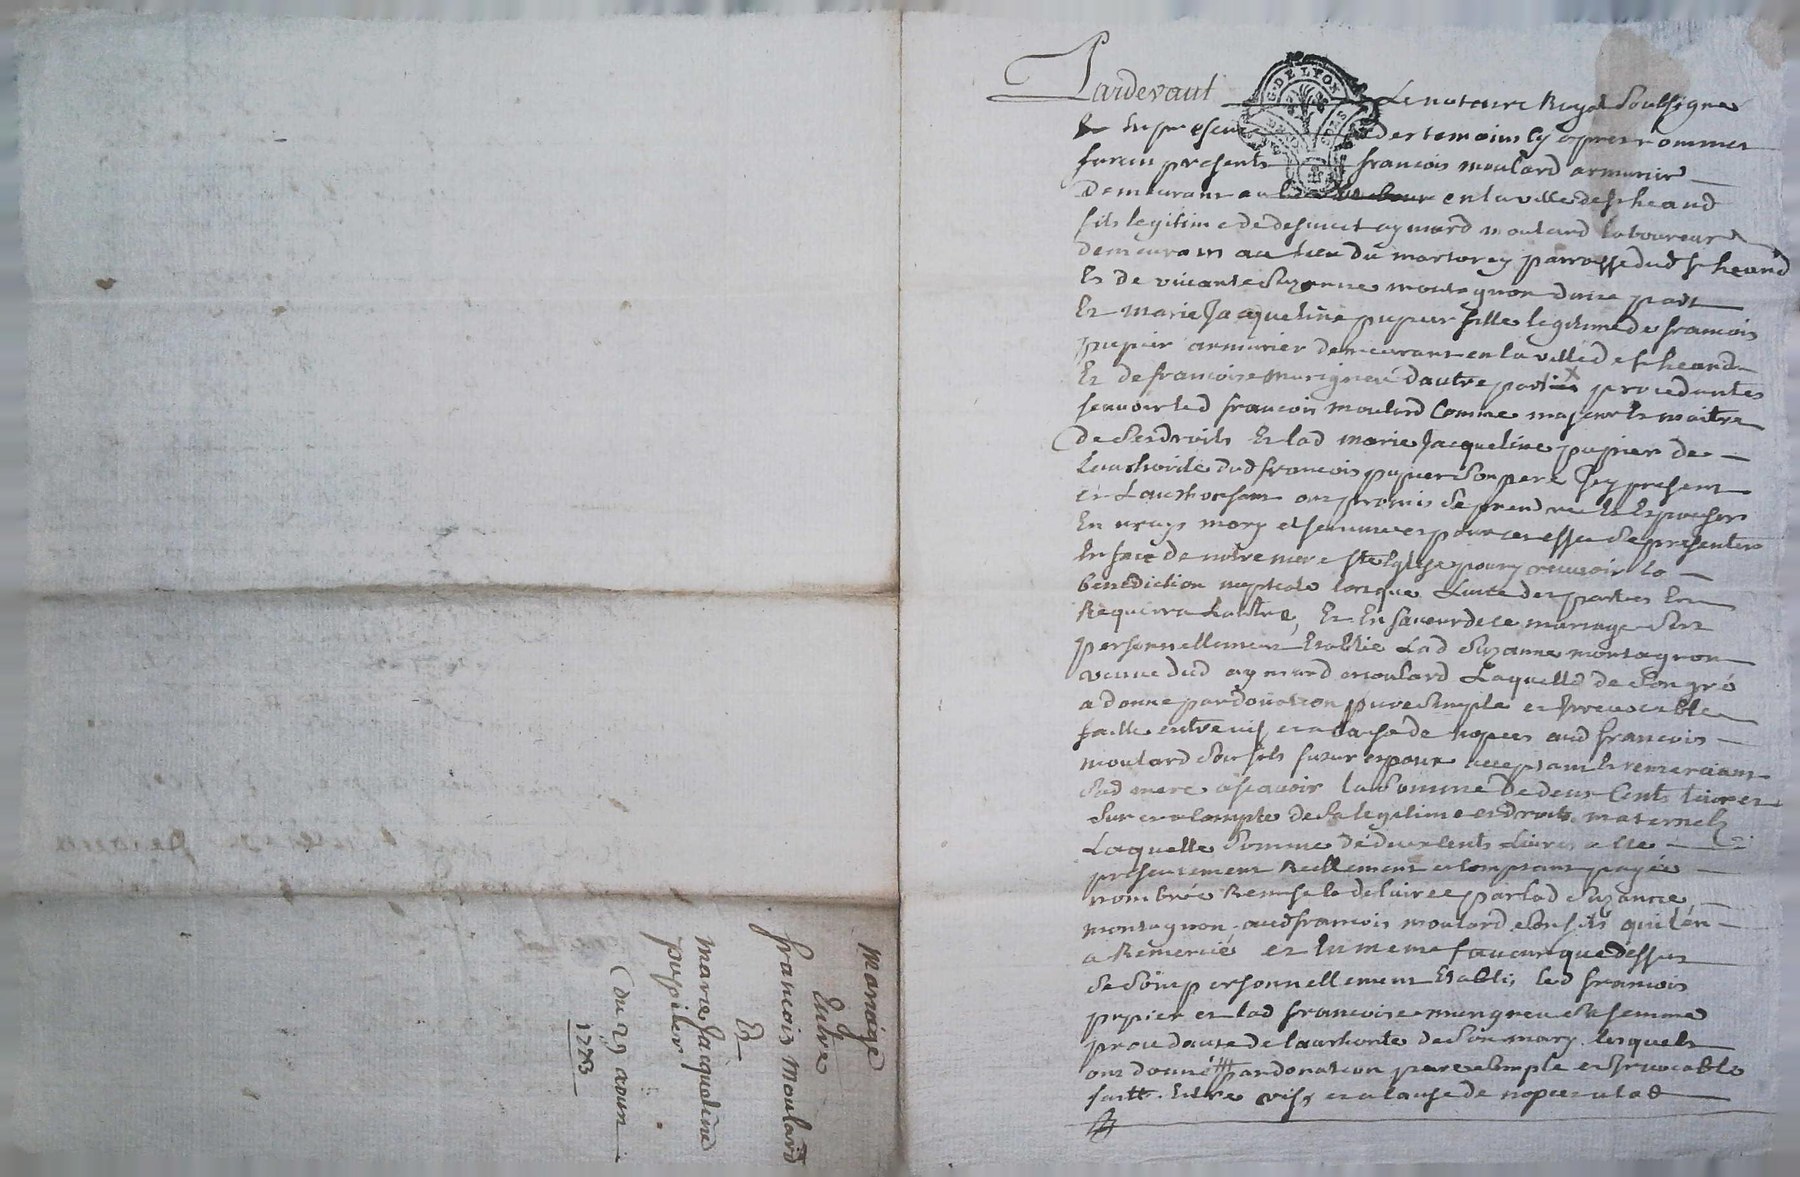 Pardevant Le notaire Royal Soubsigne
Et En presence des temoins cy apres nommes
furent presents francois moulard armurier
demeurant au en la ville de st heand
fils legitime de defunct aymard moulard laboureur
demeurant au lieu du martorey parroisse dud st heand
Et de vivante Suzanne montagnon d'une part
Et Marie Jacqueline pupier fille legitime de francois
pupier armurier demeurant en la ville de st heand
Et de francoise d'autre part procedantes
scavoir led francois moulard Comme majeur Et maitre
de Ses droits Et lad marie Jacqueline pupier de
Lauthorité dud francois pupier Son pere Icy present
et Lauthorisant ont promis Se prendre Et Epouser
En vrays mary et femme et pour cet effet Se presenter
En face de notre mere Ste Eglise pour y recevoir la
benediction nuptiale lorsque Lune des parties En
Requerra Lautre, Et En faveur de ce mariage S'est
personnellement Etablie Lad Suzanne montagnon
veuve dud aymard moulard Laquelle de Son gré
a donné par donation pure Simple et Irrevocable
faitte entre vifs et a cause de nopces aud francois
moulard Son fils futur epoux acceptant Et remerciant
Sad mere a scavoir la Somme De deux Cents livres
Sur et a Compte de Sa legitime et droits maternels
Laquelle Somme de deux Cents Livres a Eté
presentement Reellement et Comptant payée
nombrée Remise et delivrée par lad Suzanne
montagnon aud francois moulard Son fils qui l'en
a Remercié et En meme faveur que dessus
Se Sont personnellement Etablis led francois
pupier et lad francoise Sa femme
procedante de l'authorité de Son mary lesquels
ont donné par donation pure Simple et Irrevocable
faitte Entre vifs et a Cause de nopces a lad
Mariage
Entre
francois Moulard
Et
Marie Jacqueline
pupier
(du 29 aoust